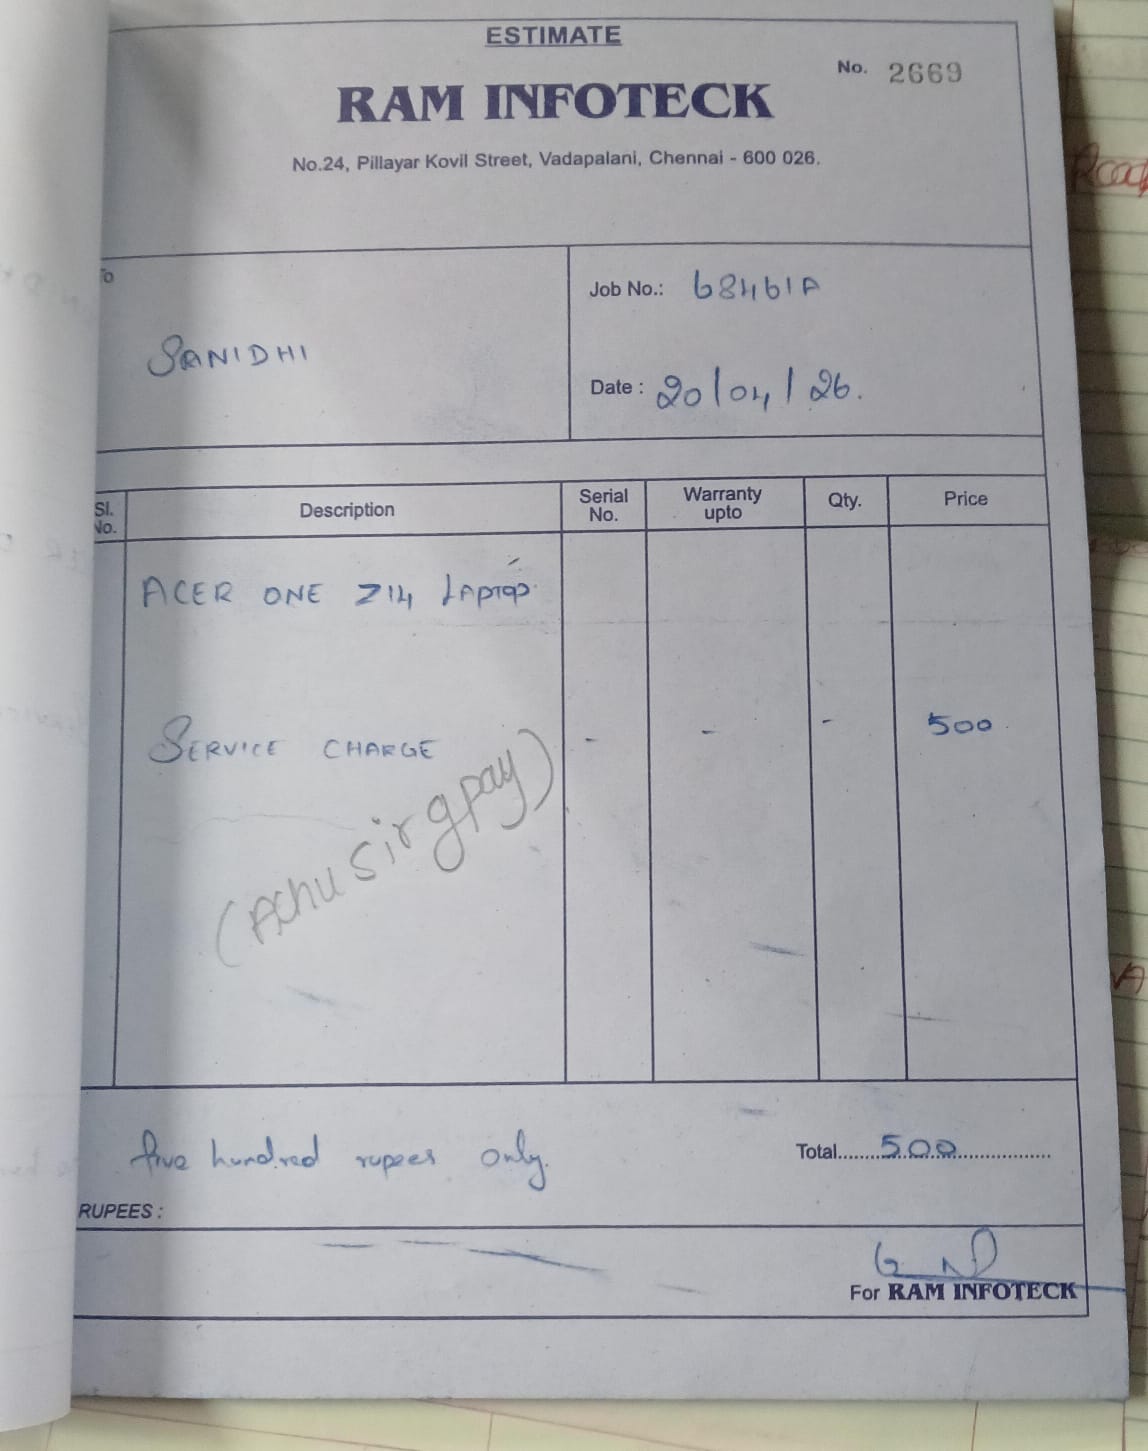 ESTIMATE
No. 2669
RAM INFOTECK
No.24, Pillayar Kovil Street, Vadapalani, Chennai - 600 026.
To
SANIDHI
Job No.: 68461A
Date : 20/04/26.
Sl. No. Description Serial No. Warranty upto Qty. Price
ACER ONE Z14 LAPTOP
SERVICE CHARGE - - - 500
(Achu sir gpay)
five hundred rupees only.
Total........500..................
RUPEES :
For RAM INFOTECK